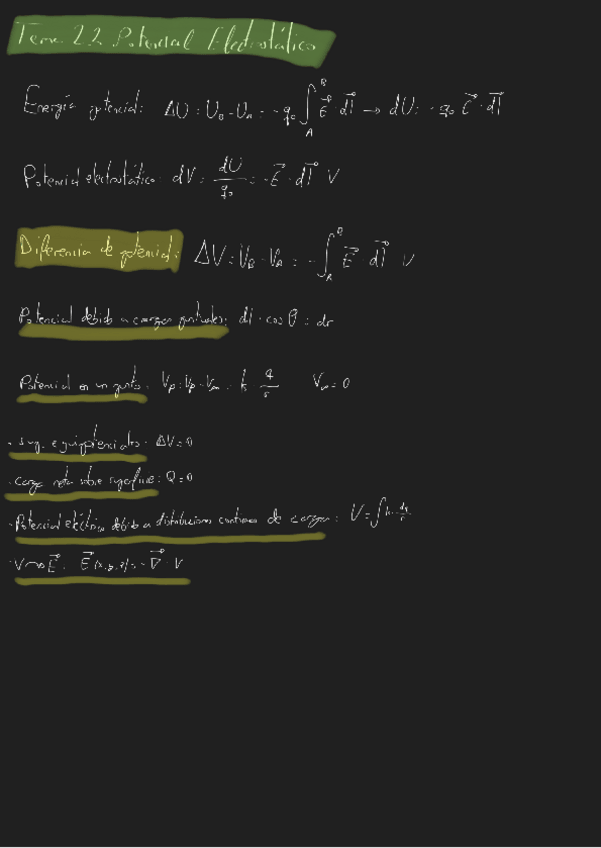 Tema 2.2 Potencial Electrostático
Energía potencial: ΔU = U_B - U_A = -q₀ ∫_A^B E⃗ · dl⃗ → dU = -q₀ E⃗ · dl⃗
Potencial electrostático: dV = dU/q₀ = -E⃗ · dl⃗ V
Diferencia de potencial: ΔV = V_B - V_A = -∫_A^B E⃗ dl⃗ V
Potencial debido a cargas puntuales: dl · cos θ = dr
Potencial en un punto: V_p = V_p - V_∞ = k q/r V_∞ = 0
· sup. equipotenciales: ΔV = 0
· Carga neta sobre superficie: Q = 0
· Potencial eléctrico debido a distribuciones continuas de cargas: V = ∫k · dq/r
· V → E⃗. E⃗(x,y,z) = -∇⃗ · V